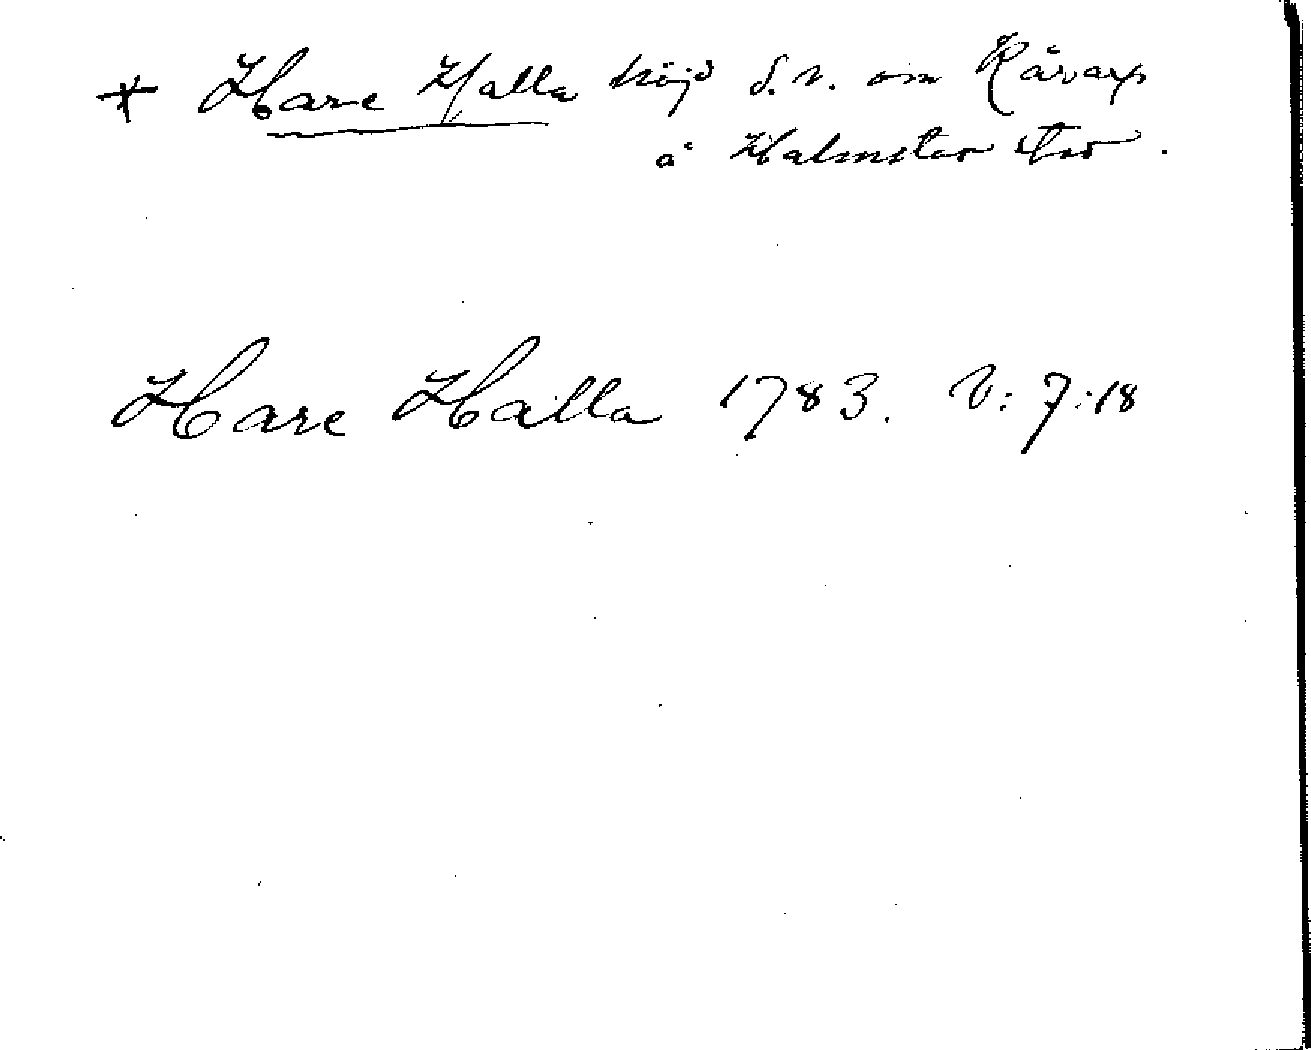 * Hare Halla höjd S.v. om Kårarp
å Halmstad
Hare Halla 1783. V: 7:18